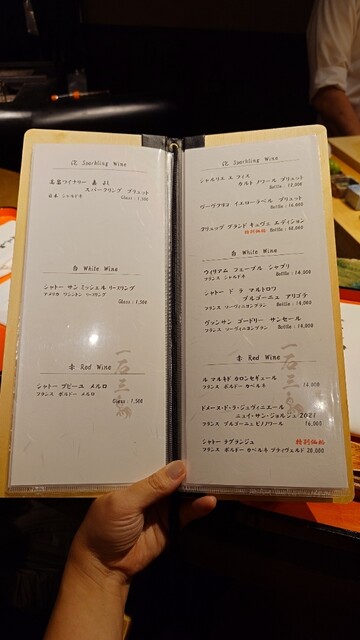 泡 Sparkling Wine
高畠ワイナリー 嘉 スパークリング ブリュット
日本 シャルドネ Glass : 1,300
白 White Wine
シャトー サン ミッシェル リースリング
アメリカ ワシントン リースリング
Glass : 1,300
赤 Red Wine
シャトー プピーユ メルロ
フランス ボルドー メルロ
Glass : 1,500
泡 Sparkling Wine
カルト ノワール ブリュット
Bottle : 13,000
ヴーヴクリコ イエローラベル ブリュット
Bottle : 16,000
クリュッグ グランド キュヴェ エディション
特別価格 Bottle : 48,000
白 White Wine
ウィリアム フェーブル シャブリ
フランス シャルドネ Bottle : 14,000
シャトー ド ラ マルトロワ
ブルゴーニュ アリゴテ
Bottle : 14,000
ヴァンサン ゴードリー サンセール
フランス ソーヴィニヨンブラン Bottle : 14,000
赤 Red Wine
ル マルキド カロンセギュール
フランス ボルドー カベルネ 16,000
ドメーヌ・ド・ラ・ジェヴィニエール
ニュイ・サン・ジョルジュ 2021
フランス ブルゴーニュピノノワール 16,000
シャトー ラグランジュ 特別価格
フランス ボルドー カベルネ プティヴェルド 20,000